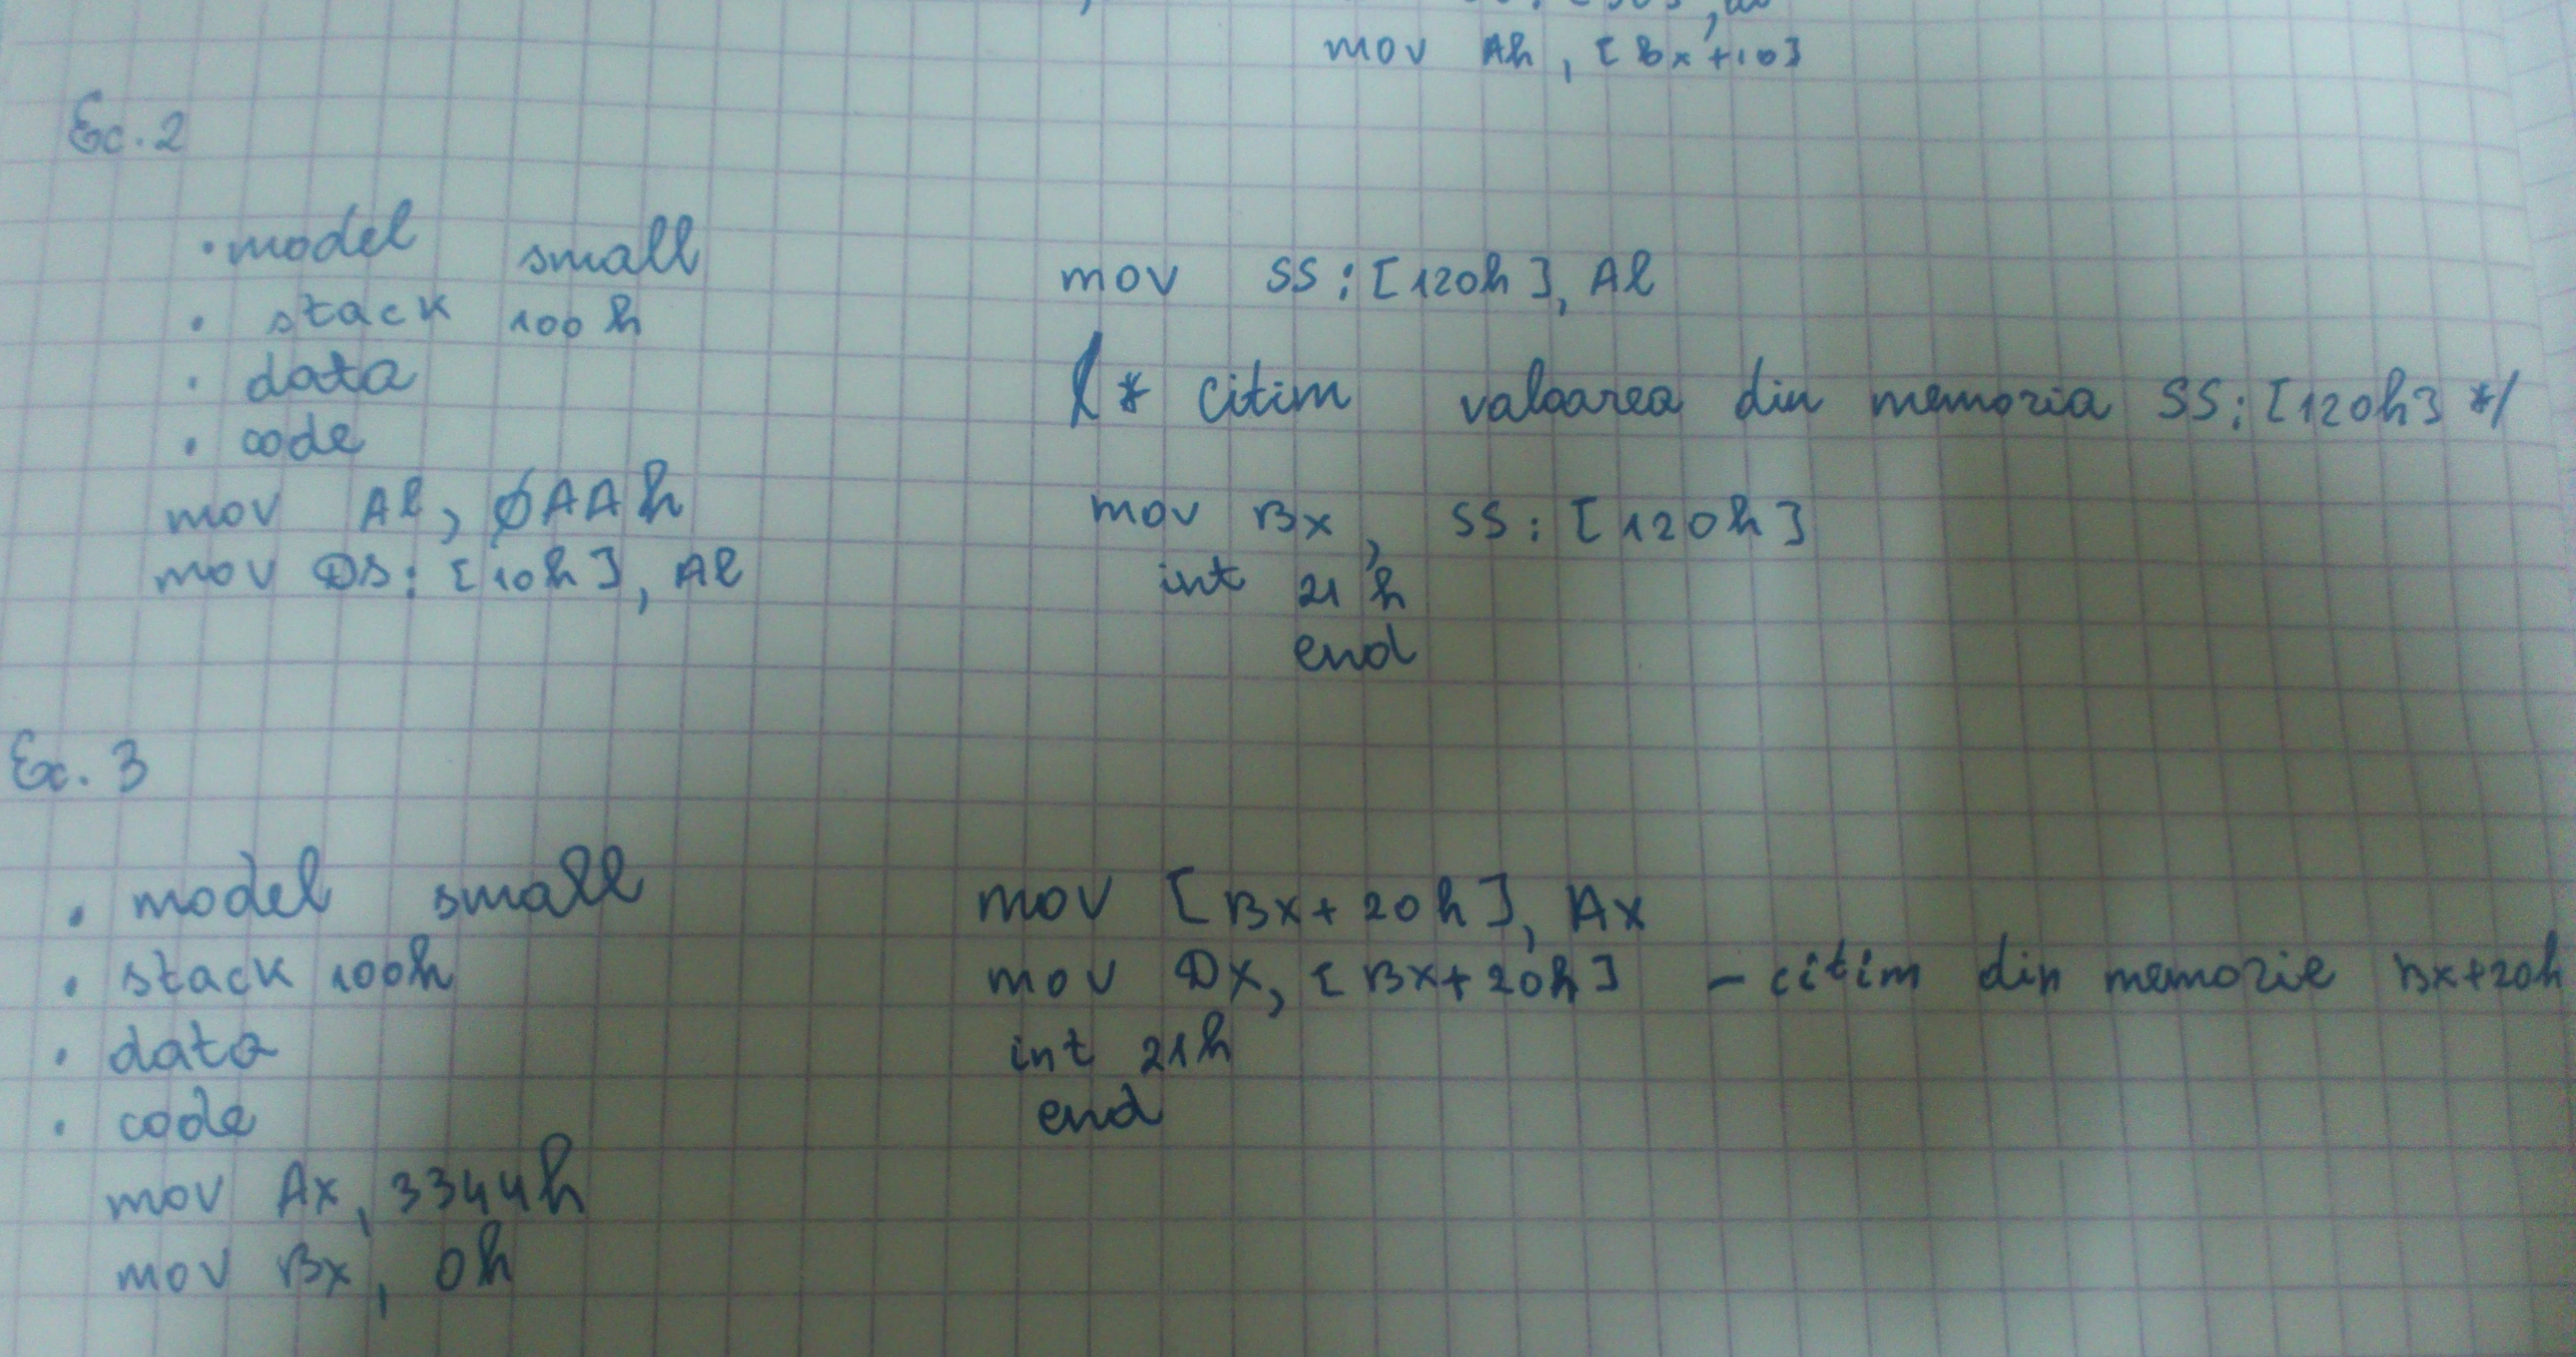 mov Ah, [Bx+10]
Ex. 2
.model small
. stack 100h
. data
. code
mov Al, 0AAh
mov DS:[10h], Al
mov SS:[120h], Al
/* citim valoarea din memoria SS:[120h] */
mov Bx, SS:[120h]
int 21h
end
Ex. 3
. model small
. stack 100h
. data
. code
mov Ax, 3344h
mov Bx, 0h
mov [Bx+20h], Ax
mov Dx, [Bx+20h] - citim din memorie Bx+20h
int 21h
end